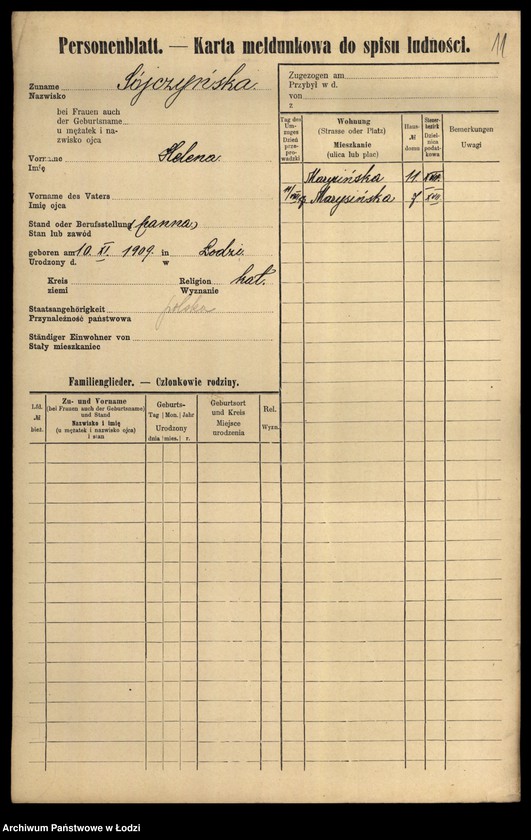 Personenblatt. — Karta meldunkowa do spisu ludności.
11
Zuname Sójczyńska.
Nazwisko
bei Frauen auch
der Geburtsname
u mężatek i na-
zwisko ojca
Vorname Helena.
Imię
Vorname des Vaters
Imię ojca
Stand oder Berufsstellung (panna)
Stan lub zawód
geboren am 10. XI. 1909. in Łodzi.
Urodzony d. w
Kreis Religion kat.
ziemi Wyznanie
Staatsangehörigkeit polska
Przynależność państwowa
Ständiger Einwohner von
Stały mieszkaniec
Zugezogen am
Przybył w d.
von
z
Tag des Um-zuges Dzień prze-prowadzki
Wohnung (Strasse oder Platz) Mieszkanie (ulica lub plac)
Haus- № domu
Steuer-bezirk Dziel-nica podat-kowa
Bemerkungen Uwagi
Marysińska 11 XVII.
Marysińska 7 XVII
Familienglieder. — Członkowie rodziny.
Lfd. № bież.
Zu- und Vorname (bei Frauen auch der Geburtsname) und Stand Nazwisko i imię (u mężatek i nazwisko ojca) i stan
Geburts- Tag Mon. Jahr Urodzony dnia mies. r.
Geburtsort und Kreis Miejsce urodzenia
Rel. Wyzn.
Archiwum Państwowe w Łodzi